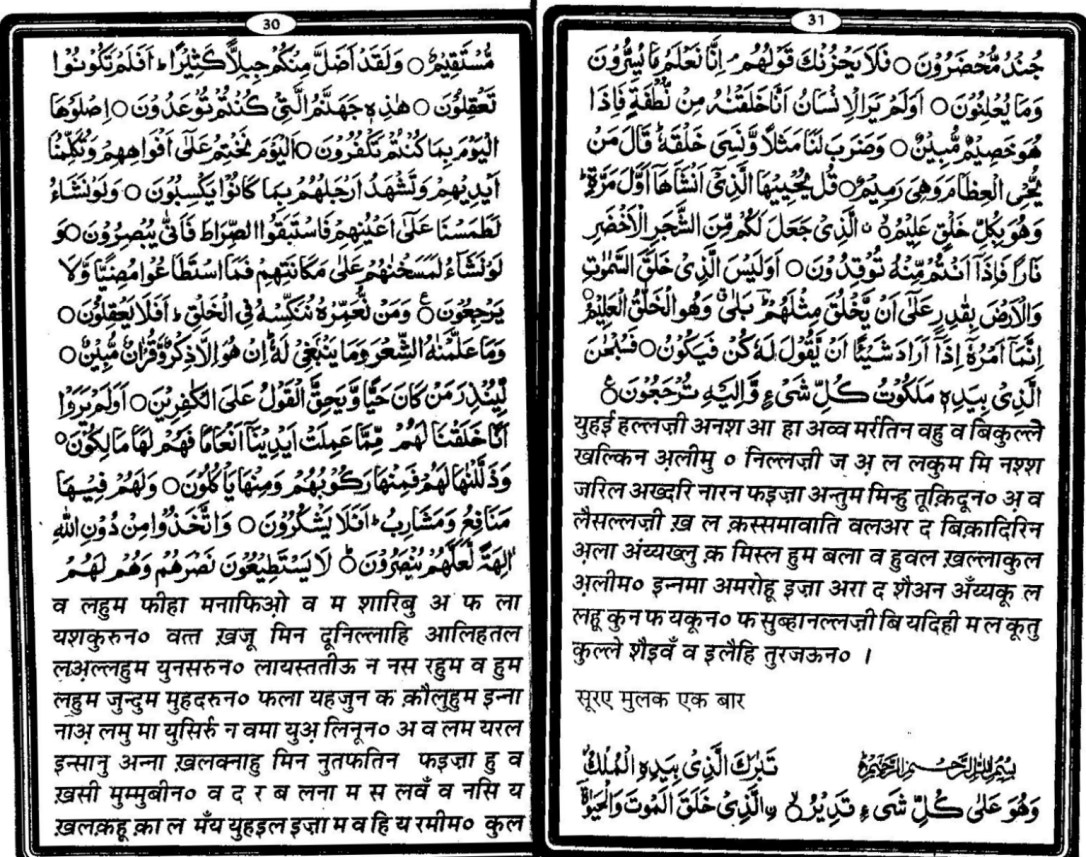 30
مُّسْتَقِيْمٌ ○ وَلَقَدْ اَضَلَّ مِنْكُمْ جِبِلًّا كَثِيْرًا ؕ اَفَلَمْ تَكُوْنُوْا
تَعْقِلُوْنَ ○ هٰذِهٖ جَهَنَّمُ الَّتِیْ كُنْتُمْ تُوْعَدُوْنَ ○ اِصْلَوْهَا
الْيَوْمَ بِمَا كُنْتُمْ تَكْفُرُوْنَ ○ اَلْيَوْمَ نَخْتِمُ عَلٰٓی اَفْوَاهِهِمْ وَتُكَلِّمُنَآ
اَيْدِيْهِمْ وَتَشْهَدُ اَرْجُلُهُمْ بِمَا كَانُوْا يَكْسِبُوْنَ ○ وَلَوْ نَشَآءُ
لَطَمَسْنَا عَلٰٓی اَعْيُنِهِمْ فَاسْتَبَقُوا الصِّرَاطَ فَاَنّٰی يُبْصِرُوْنَ ○ وَ
لَوْ نَشَآءُ لَمَسَخْنٰهُمْ عَلٰی مَكَانَتِهِمْ فَمَا اسْتَطَاعُوْا مُضِيًّا وَّلَا
يَرْجِعُوْنَ ○ وَمَنْ نُّعَمِّرْهُ نُنَكِّسْهُ فِی الْخَلْقِ ؕ اَفَلَا يَعْقِلُوْنَ ○
وَمَا عَلَّمْنٰهُ الشِّعْرَ وَمَا يَنْۢبَغِیْ لَهٗ ؕ اِنْ هُوَ اِلَّا ذِكْرٌ وَّقُرْاٰنٌ مُّبِيْنٌ ○
لِّيُنْذِرَ مَنْ كَانَ حَيًّا وَّيَحِقَّ الْقَوْلُ عَلَی الْكٰفِرِيْنَ ○ اَوَلَمْ يَرَوْا
اَنَّا خَلَقْنَا لَهُمْ مِّمَّا عَمِلَتْ اَيْدِيْنَآ اَنْعَامًا فَهُمْ لَهَا مَالِكُوْنَ ○
وَذَلَّلْنٰهَا لَهُمْ فَمِنْهَا رَكُوْبُهُمْ وَمِنْهَا يَاْكُلُوْنَ ○ وَلَهُمْ فِيْهَا
مَنَافِعُ وَمَشَارِبُ ؕ اَفَلَا يَشْكُرُوْنَ ○ وَاتَّخَذُوْا مِنْ دُوْنِ اللّٰهِ
اٰلِهَةً لَّعَلَّهُمْ يُنْصَرُوْنَ ○ لَا يَسْتَطِيْعُوْنَ نَصْرَهُمْ وَهُمْ لَهُمْ
व लहुम फीहा मनाफिओ़ व म शारिबु अ फ ला
यशकुरुन० वत्त ख़जू मिन दूनिल्लाहि आलिहतल
लअ़ल्लहुम युनसरुन० लायस्ततीऊ न नस रहुम व हुम
लहुम जुन्दुम मुहदरुन० फला यहजुन क क़ौलुहुम इन्ना
नाअ़ लमु मा युसिर्रु न वमा युअ़ लिनून० अ व लम यरल
इन्सानु अन्ना ख़लक्नाहु मिन नुतफतिन फइज़ा हु व
ख़सी मुम्मुबीन० व द र ब लना म स लवँ व नसि य
ख़लक़हू क़ा ल मँय युहइल इज़ा म व हि य रमीम० कुल
31
جُنْدٌ مُّحْضَرُوْنَ ○ فَلَا يَحْزُنْكَ قَوْلُهُمْ ؔ اِنَّا نَعْلَمُ مَا يُسِرُّوْنَ
وَمَا يُعْلِنُوْنَ ○ اَوَلَمْ يَرَ الْاِنْسَانُ اَنَّا خَلَقْنٰهُ مِنْ نُّطْفَةٍ فَاِذَا
هُوَ خَصِيْمٌ مُّبِيْنٌ ○ وَضَرَبَ لَنَا مَثَلًا وَّنَسِیَ خَلْقَهٗ ؕ قَالَ مَنْ
يُّحْیِ الْعِظَامَ وَهِیَ رَمِيْمٌ ○ قُلْ يُحْيِيْهَا الَّذِیْٓ اَنْشَاَهَآ اَوَّلَ مَرَّةٍ ؕ
وَهُوَ بِكُلِّ خَلْقٍ عَلِيْمُ ○ ۨالَّذِیْ جَعَلَ لَكُمْ مِّنَ الشَّجَرِ الْاَخْضَرِ
نَارًا فَاِذَآ اَنْتُمْ مِّنْهُ تُوْقِدُوْنَ ○ اَوَلَيْسَ الَّذِیْ خَلَقَ السَّمٰوٰتِ
وَالْاَرْضَ بِقٰدِرٍ عَلٰٓی اَنْ يَّخْلُقَ مِثْلَهُمْ ؕ بَلٰی ۗ وَهُوَ الْخَلّٰقُ الْعَلِيْمُ ○
اِنَّمَآ اَمْرُهٗٓ اِذَآ اَرَادَ شَيْئًا اَنْ يَّقُوْلَ لَهٗ كُنْ فَيَكُوْنُ ○ فَسُبْحٰنَ
الَّذِیْ بِيَدِهٖ مَلَكُوْتُ كُلِّ شَیْءٍ وَّاِلَيْهِ تُرْجَعُوْنَ ○
युहई हल्लज़ी अनश आ हा अव्व मर्रतिन वहु व बिकुल्ले
खल्किन अ़लीमु ० निल्लज़ी ज अ़ ल लकुम मि नश्श
जरिल अख्दरि नारन फइज़ा अन्तुम मिन्हु तूक़िदून० अ़ व
लैसल्लज़ी ख़ ल क़स्समावाति वलअर द बिक़ादिरिन
अ़ला अंय्यख्लु क़ मिस्ल हुम बला व हुवल ख़ल्लाकुल
अ़लीम० इन्नमा अमरोहू इज़ा अरा द शैअन अँय्यकू ल
लहू कुन फ यकून० फ सुब्हानल्लज़ी बि यदिही म ल कूतु
कुल्ले शैइवँ व इलैहि तुरजऊन० ।
सूरए मुलक एक बार
بِسْمِ اللّٰهِ الرَّحْمٰنِ الرَّحِيْمِ تَبٰرَكَ الَّذِیْ بِيَدِهِ الْمُلْكُ
وَهُوَ عَلٰی كُلِّ شَیْءٍ قَدِيْرُ ○ ۨالَّذِیْ خَلَقَ الْمَوْتَ وَالْحَيٰوةَ